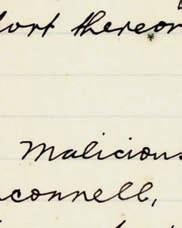 port thereon
Malicious
connell,